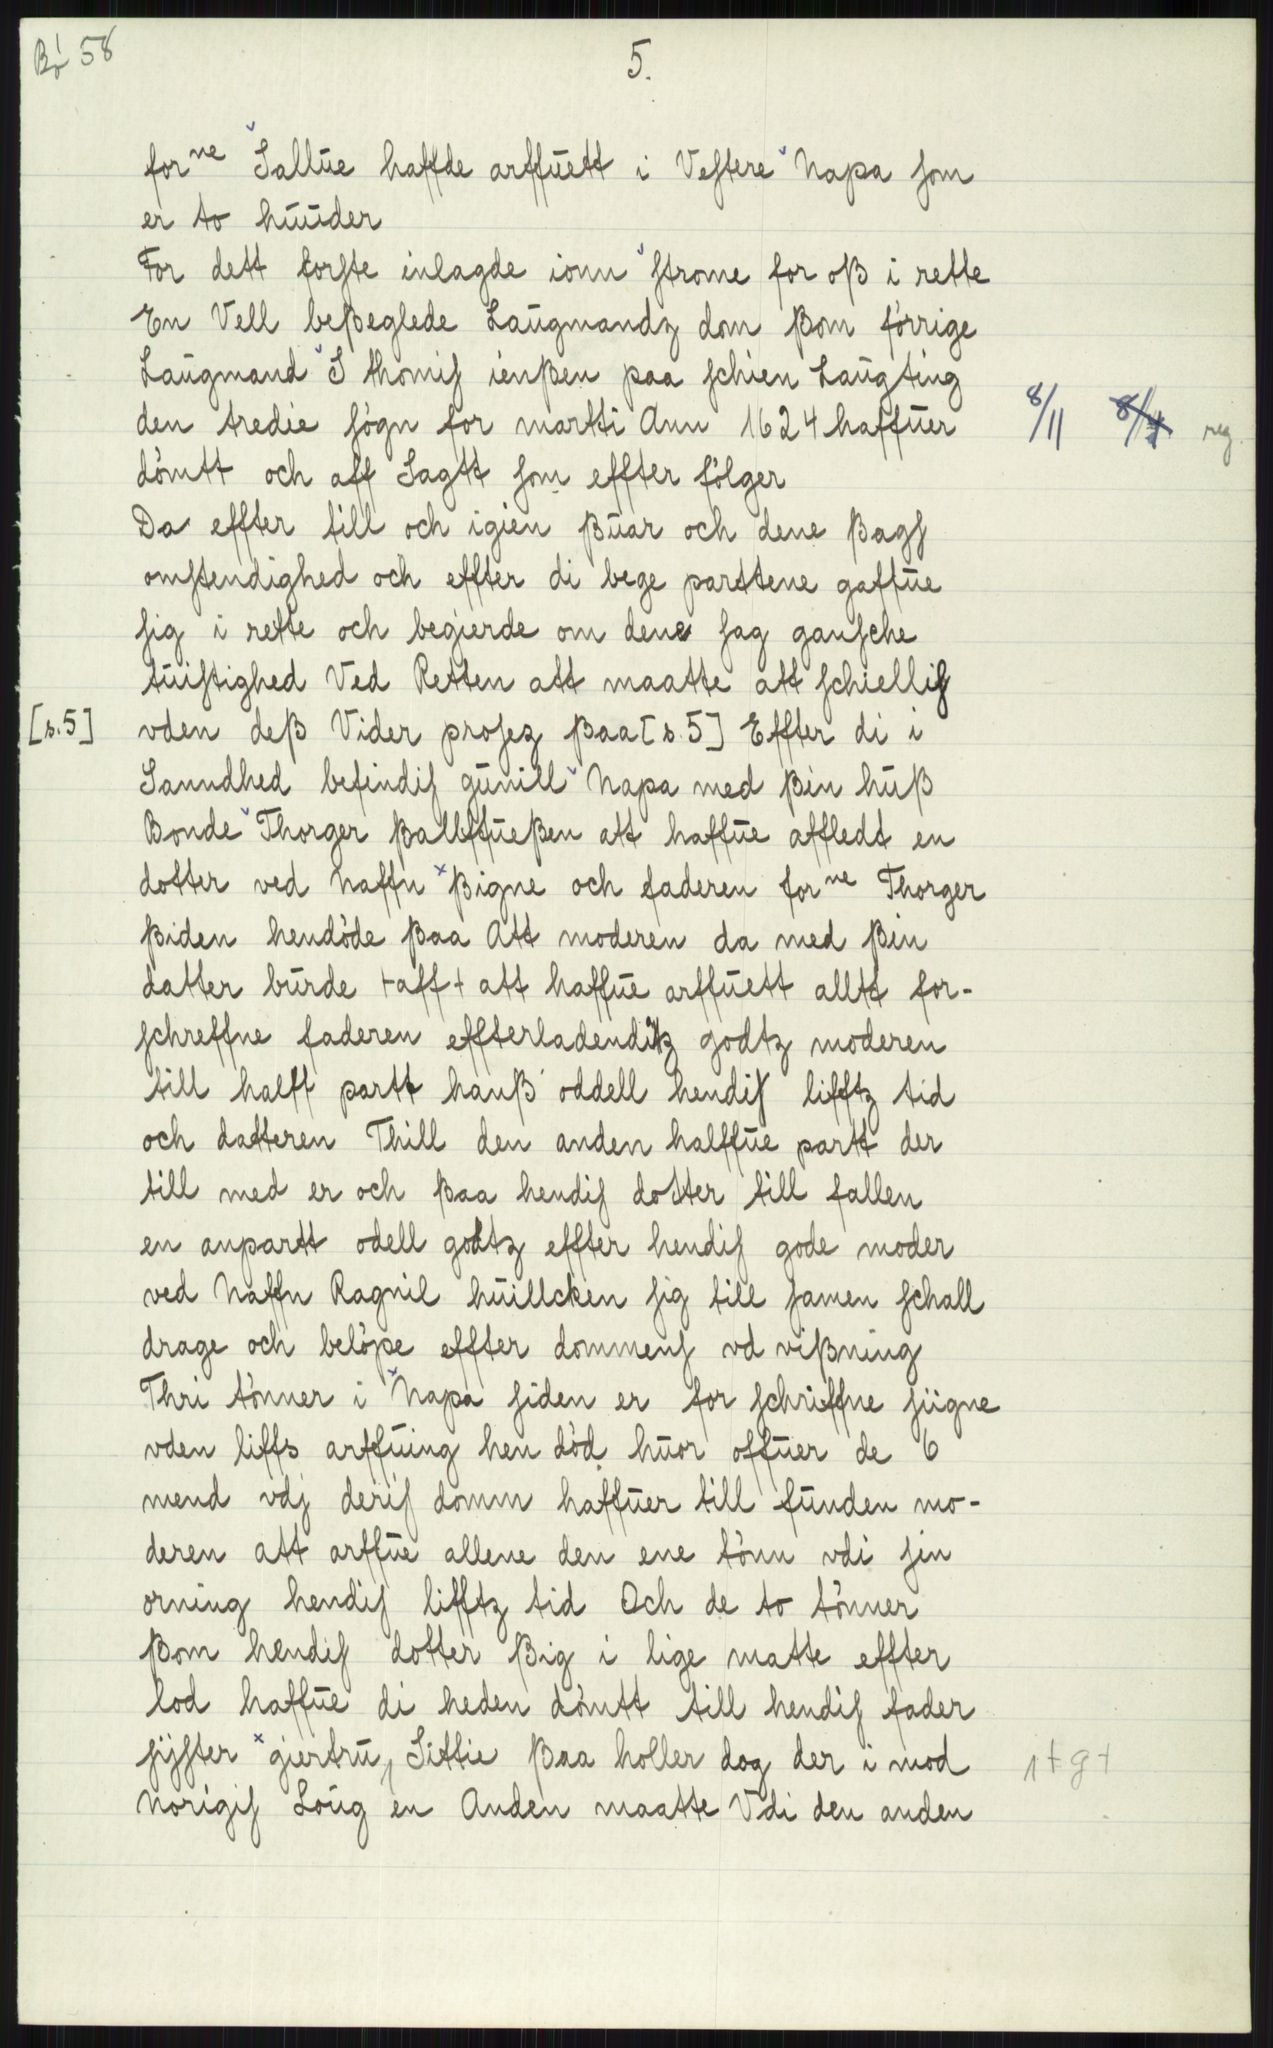 Bø 58
5.
for ne Sallūe haffde arffūett i Vestere Napa som
er to hūuder
For dett førfte inlagde ionn strome for oß i rette
En Vell beßeglede Laūgmandz dom ßom førrige
Laūgmand S thomis ienßen paa schien Laūgting
den tredie søgn for martti Ann 1624 haffūer 8/11 8/11 reg
dømtt och aff Sagtt som effter følger
Da effter till och igien ßūar och dene ßags
omstendighed och effter di bege parttene gaffūe
sig i rette och begierde om dene sag gansche
tūistighed Ved Retten att maatte att schiellis
[s.5] vden deß Vider prosez ßaa [s.5] Effter di i
Sanndhed befindis gūnill Napa med ßin hūß
Bonde Thorger ßallffūeßen att haffūe affledt en
dotter ved Naffn ßigne och faderen for ne Thorger
ßiden hendøde ßaa Att moderen da med ßin
datter būrde +aff+ att haffūe arffūett alltt for-
schreffne faderen effterladenditz godtz moderen
till halff partt hanß oddell hendis lifftz tid
och datteren Thill den anden halffūe partt der
till med er och ßaa hendis dotter till fallen
en anpartt odell godtz effter hendis gode moder
ved Naffn Ragnil hūillcken sig till samen schall
drage och beløpe effter dommens vd vißning
Thri tønner i Napa siden er for schriffne siigne
vden liffs arffūing hen død hūor offūer de 6
mend vdj deris domm haffūer till fūnden mo-
deren att arffūe allene den ene tønn vdi sin
orning hendis lifftz tid Och de to tønner
ßom hendis dotter ßig i lige matte effter
lod haffūe di heden dømtt till hendis fader
sijster giertrū, Sittie ßaa holler dog der i mod 1+g+
Norigis Loūg en Anden maatte Vdi den anden